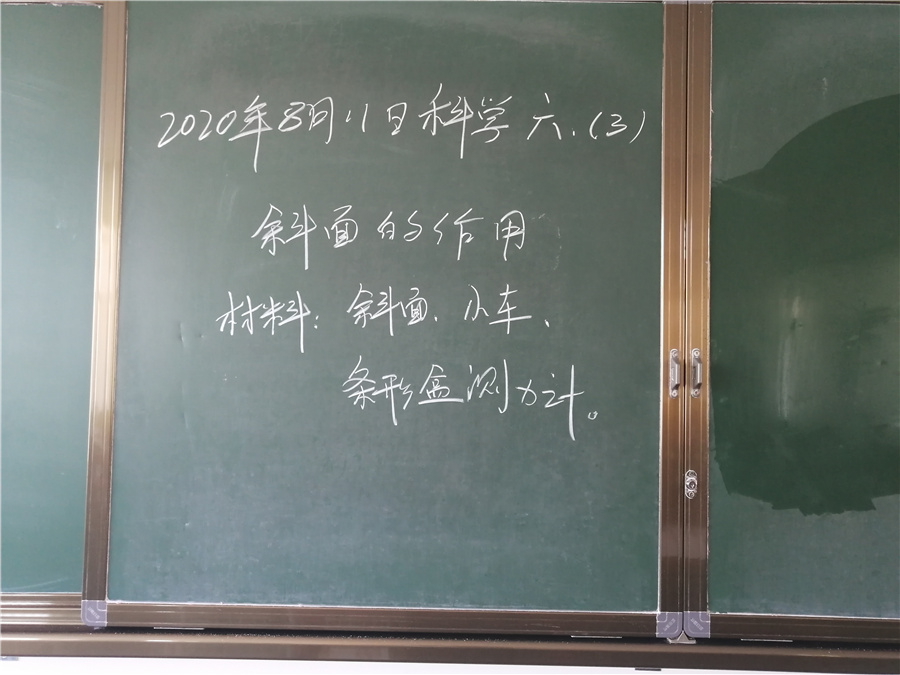 2020年8月11日科学六.(3)
斜面的作用
材料:斜面、小车、
条形盒测力计。